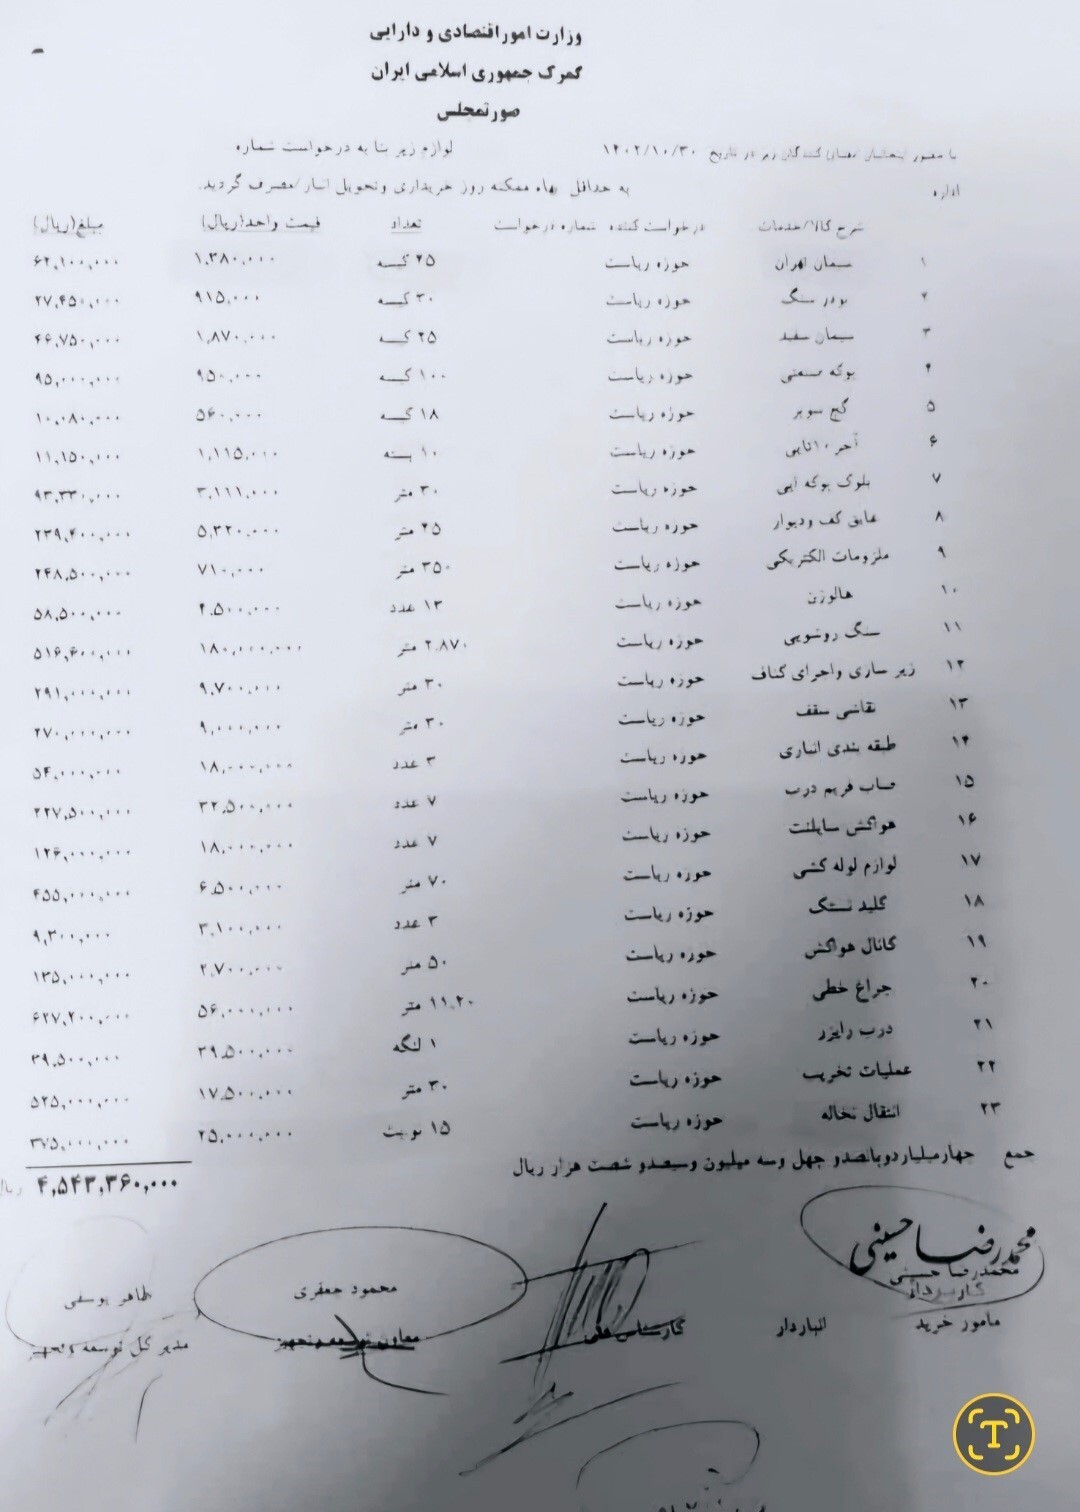 وزارت امور اقتصادی و دارایی
گمرک جمهوری اسلامی ایران
صورتمجلس
با حضور امضاء کنندگان زیر در تاریخ ۱۴۰۲/۱۰/۳۰ لوازم زیر بنا به درخواست شماره
اداره به حداقل بهاء ممکنه روز خریداری و تحویل انبار/مصرف گردید.
شرح کالا/خدمات درخواست کننده شماره درخواست تعداد قیمت واحد(ریال) مبلغ(ریال)
۱ سیمان تهران حوزه ریاست ۴۵ کیسه ۱,۳۸۰,۰۰۰ ۶۲,۱۰۰,۰۰۰
۲ پودر سنگ حوزه ریاست ۳۰ کیسه ۹۱۵,۰۰۰ ۲۷,۴۵۰,۰۰۰
۳ سیمان سفید حوزه ریاست ۲۵ کیسه ۱,۸۷۰,۰۰۰ ۴۶,۷۵۰,۰۰۰
۴ پوکه صنعتی حوزه ریاست ۱۰۰ کیسه ۹۵۰,۰۰۰ ۹۵,۰۰۰,۰۰۰
۵ گچ سوپر حوزه ریاست ۱۸ کیسه ۵۶۰,۰۰۰ ۱۰,۰۸۰,۰۰۰
۶ آجر ۱۰تایی حوزه ریاست ۱۰ بسته ۱,۱۱۵,۰۰۰ ۱۱,۱۵۰,۰۰۰
۷ بلوک پوکه ایی حوزه ریاست ۳۰ متر ۳,۱۱۱,۰۰۰ ۹۳,۳۳۰,۰۰۰
۸ عایق کف ودیوار حوزه ریاست ۴۵ متر ۵,۳۲۰,۰۰۰ ۲۳۹,۴۰۰,۰۰۰
۹ ملزومات الکتریکی حوزه ریاست ۳۵۰ متر ۷۱۰,۰۰۰ ۲۴۸,۵۰۰,۰۰۰
۱۰ هالوژن حوزه ریاست ۱۳ عدد ۴,۵۰۰,۰۰۰ ۵۸,۵۰۰,۰۰۰
۱۱ سنگ روشویی حوزه ریاست ۲,۸۷۰ متر ۱۸۰,۰۰۰,۰۰۰ ۵۱۶,۶۰۰,۰۰۰
۱۲ زیر سازی واجرای کناف حوزه ریاست ۳۰ متر ۹,۷۰۰,۰۰۰ ۲۹۱,۰۰۰,۰۰۰
۱۳ نقاشی سقف حوزه ریاست ۳۰ متر ۹,۰۰۰,۰۰۰ ۲۷۰,۰۰۰,۰۰۰
۱۴ طبقه بندی انباری حوزه ریاست ۳ عدد ۱۸,۰۰۰,۰۰۰ ۵۴,۰۰۰,۰۰۰
۱۵ ساب فریم درب حوزه ریاست ۷ عدد ۳۲,۵۰۰,۰۰۰ ۲۲۷,۵۰۰,۰۰۰
۱۶ هواکش سایلنت حوزه ریاست ۷ عدد ۱۸,۰۰۰,۰۰۰ ۱۲۶,۰۰۰,۰۰۰
۱۷ لوازم لوله کشی حوزه ریاست ۷۰ متر ۶,۵۰۰,۰۰۰ ۴۵۵,۰۰۰,۰۰۰
۱۸ کلید نستک حوزه ریاست ۳ عدد ۳,۱۰۰,۰۰۰ ۹,۳۰۰,۰۰۰
۱۹ کانال هواکش حوزه ریاست ۵۰ متر ۲,۷۰۰,۰۰۰ ۱۳۵,۰۰۰,۰۰۰
۲۰ چراغ خطی حوزه ریاست ۱۱,۲۰ متر ۵۶,۰۰۰,۰۰۰ ۶۲۷,۲۰۰,۰۰۰
۲۱ درب رایزر حوزه ریاست ۱ لنگه ۳۹,۵۰۰,۰۰۰ ۳۹,۵۰۰,۰۰۰
۲۲ عملیات تخریب حوزه ریاست ۳۰ متر ۱۷,۵۰۰,۰۰۰ ۵۲۵,۰۰۰,۰۰۰
۲۳ انتقال نخاله حوزه ریاست ۱۵ نوبت ۲۵,۰۰۰,۰۰۰ ۳۷۵,۰۰۰,۰۰۰
جمع چهارمیلیاردوپانصدو چهل وسه میلیون وسیصدو شصت هزار ریال ۴,۵۴۳,۳۶۰,۰۰۰ ریال
محمدرضا حسینی
محمدرضا حسینی محمود جعفری طاهر یوسفی
کارپرداز
مامور خرید انباردار کارشناس فنی معاون توسعه وتجهیز مدیر کل توسعه وتجهیز